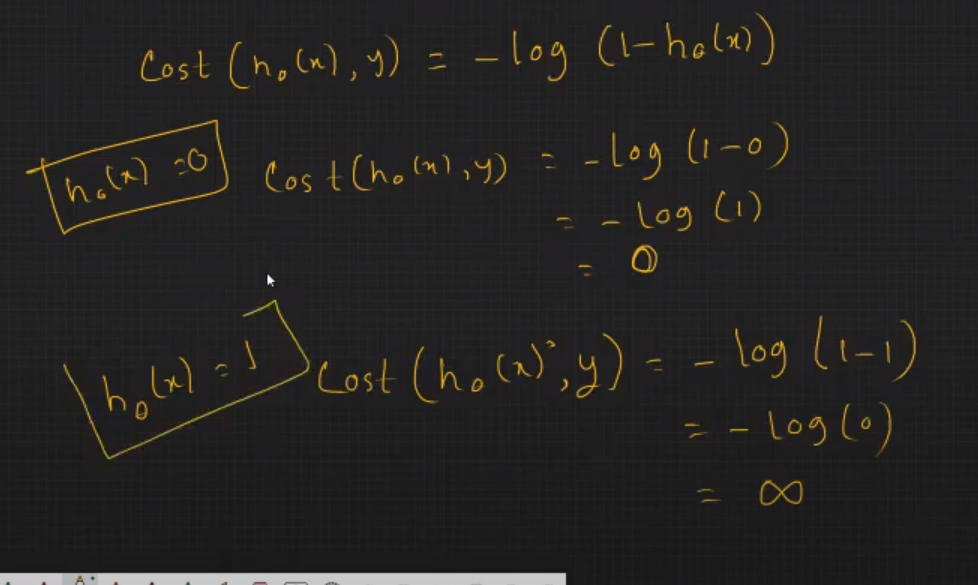 Cost (h₀(x), y) = -log (1-h₀(x))
h₀(x) =0
Cost (h₀(x), y) = -log (1-0)
= - log (1)
= 0
h₀(x) = 1
Cost (h₀(x), y) = - log (1-1)
= - log (0)
= ∞